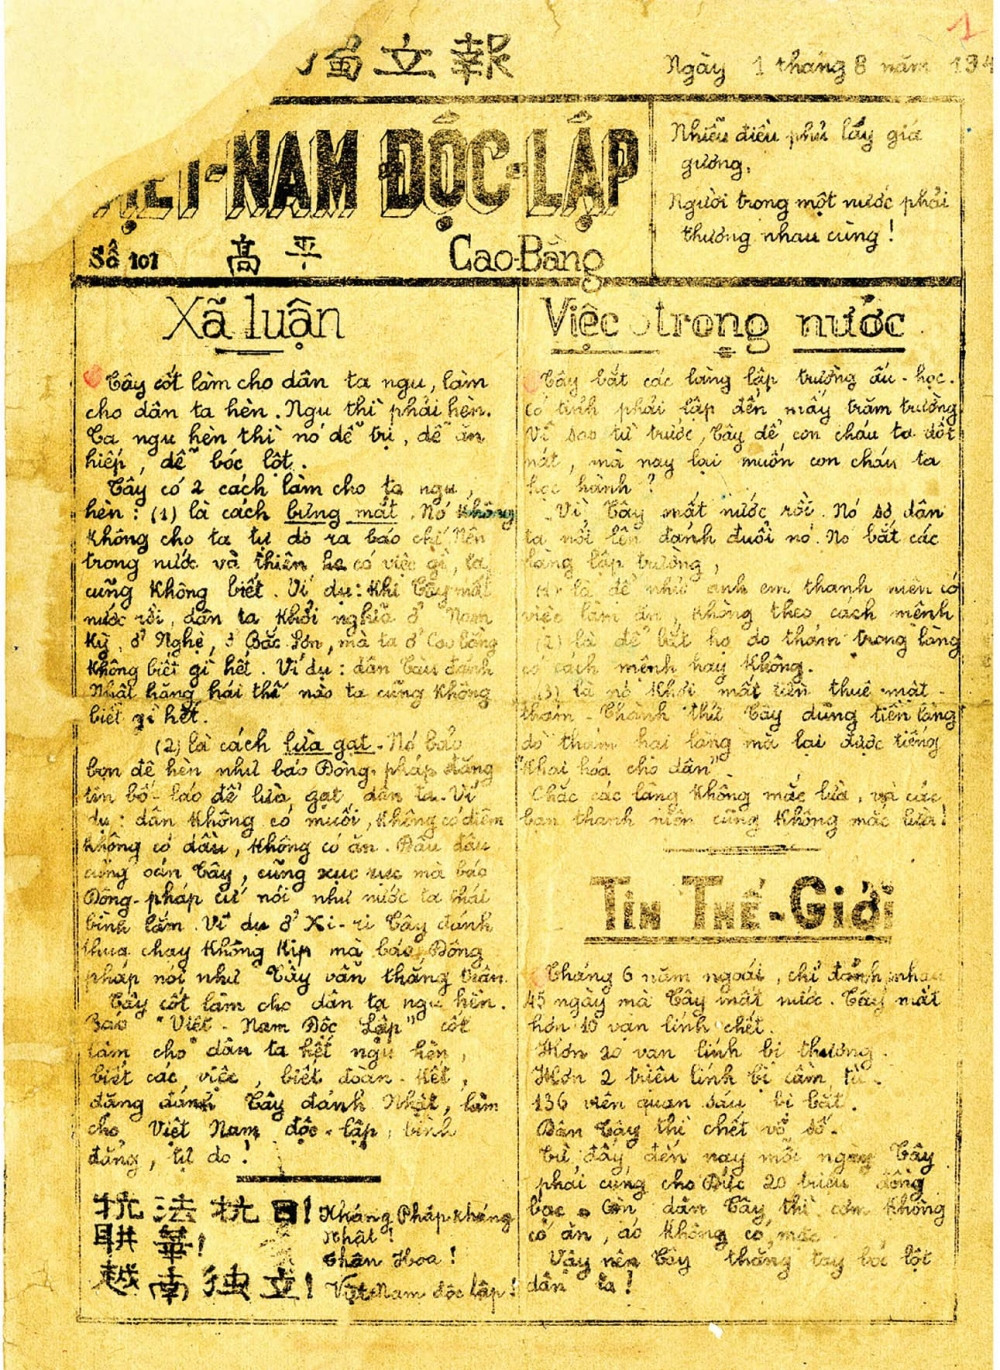 獨立報
Ngày 1 tháng 8 năm 194
1
VIỆT-NAM ĐỘC-LẬP
Số 101 高平 Cao-Bằng
Nhiễu điều phủ lấy giá
gương,
Người trong một nước phải
thương nhau cùng!
Xã luận
Tây cốt làm cho dân ta ngu, làm
cho dân ta hèn. Ngu thì phải hèn.
Ta ngu hèn thì nó dễ trị, dễ ăn
hiếp, dễ bóc lột.
Tây có 2 cách làm cho ta ngu,
hèn: (1) là cách bưng mắt. Nó không
không cho ta tự do ra báo chí. Nên
trong nước và thiên hạ có việc gì, ta
cũng không biết. Ví dụ: khi Tây mất
nước rồi, dân ta khởi nghĩa ở Nam
Kỳ, ở Nghệ, ở Bắc Sơn, mà ta ở Cao bằng
không biết gì hết. Ví dụ: dân Tàu đánh
Nhật hăng hái thế nào ta cũng không
biết gì hết.
(2) là cách lừa gạt. Nó bảo
bọn đê hèn như báo Đông-pháp đăng
tin bố-láo để lừa gạt dân ta. Ví
dụ: dân không có muối, không có diêm
không có dầu, không có ăn. Đâu đâu
cũng oán Tây, cũng xục xục mà báo
Đông-pháp cứ nói như nước ta thái
bình lắm. Ví dụ ở Xi-ri Tây đánh
thua chạy không kịp mà báo Đông
pháp nói như Tây vẫn thắng trận.
Tây cốt làm cho dân ta ngu hèn.
Báo "Việt-Nam Độc Lập" cốt
làm cho dân ta hết ngu hèn,
biết các việc, biết đoàn-kết,
đặng đánh Tây đánh Nhật, làm
cho Việt Nam độc-lập, bình
đẳng, tự do!
抗法抗日! Kháng Pháp kháng
Nhật!
聨華! Thân Hoa!
越南独立! Việt Nam độc lập!
Việc trong nước
Tây bắt các làng lập trường ấu-học.
Có tỉnh phải lập đến mấy trăm trường.
Vì sao từ trước, Tây để con cháu ta dốt
nát, mà nay lại muốn con cháu ta
học hành?
Vì Tây mất nước rồi. Nó sợ dân
ta nổi lên đánh đuổi nó. Nó bắt các
làng lập trường,
(1) là để nhử anh em thanh niên có
việc làm ăn, không theo cách mệnh
(2) là để bắt họ do thám trong làng
có cách mệnh hay không.
(3) là nó khỏi mất tiền thuê mật-
thám. Thành thử Tây dùng tiền làng
do thám hại làng mà lại được tiếng
"khai hóa cho dân"
Chắc các làng không mắc lừa, và các
bạn thanh niên cũng không mắc lừa!
TIN THẾ-GIỚI
Tháng 6 năm ngoái, chỉ đánh nhau
45 ngày mà Tây mất nước. Tây mất
hơn 10 vạn lính chết.
Hơn 20 vạn lính bị thương.
Hơn 2 triệu lính bị cầm tù.
136 viên quan sáu bị bắt.
Dân Tây thì chết vô số.
Từ đấy đến nay mỗi ngày Tây
phải cúng cho Đức 20 triệu đồng
bạc. Còn dân Tây thì cơm không
có ăn, áo không có mặc.
Vậy nên Tây thẳng tay bóc lột
dân ta!